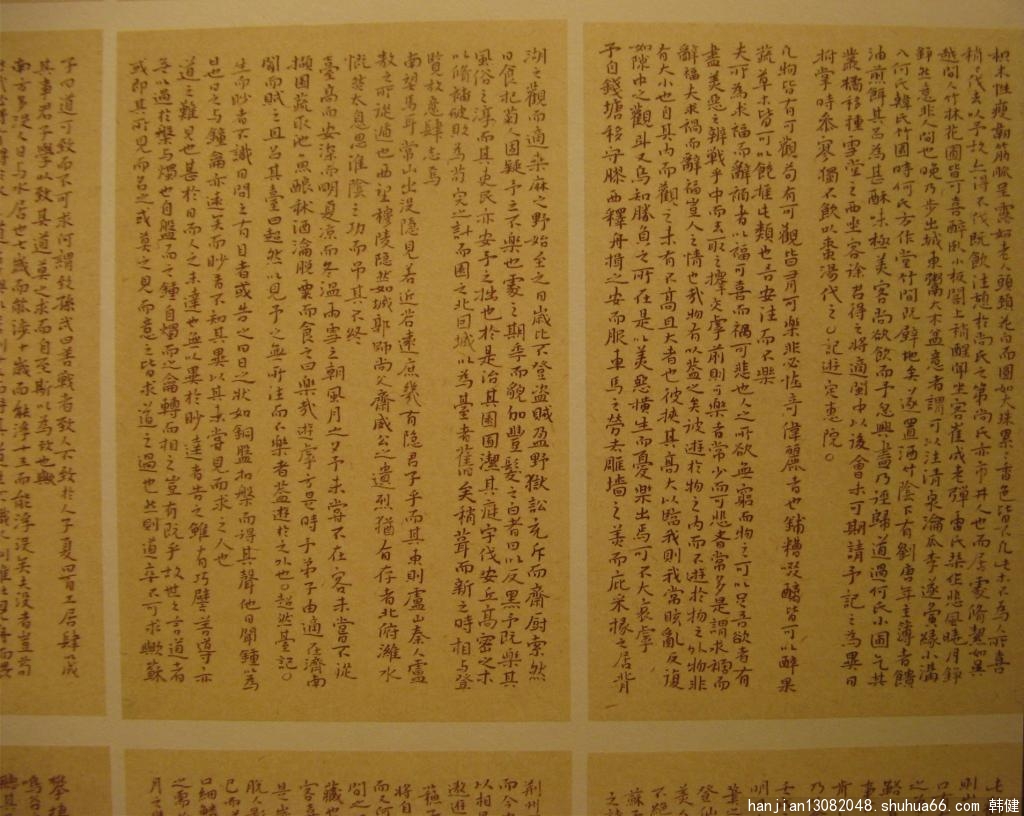 枳木性瘦韌筋脈呈露如老人頭頸花白而圓如大珠累二香色皆不凡此木不為人所喜
稍稍伐去以予故上得不伐既飲往憩於尚氏之第尚氏亦市井人也而居處脩潔如吳
越間人竹林花圃皆可喜醉臥小板閣上稍醒聞坐客崔成老彈雷氏琴作悲風曉月錚
錚然意非人間也晚乃步出城東鬻大木盆意者謂可以注清泉瀹瓜李遂夤緣小溝
入何氏韓氏竹園時何氏方作堂竹間既闢地矣遂置酒竹陰下有劉唐年主簿者饋
油煎餌其名為甚酥味極美客尚欲飲而予忽興盡乃徑歸道過何氏小圃乞其
叢橘移種雪堂之西坐客徐君得之將適閩中以後會未可期請予記之為異日
拊掌時參寥獨不飲以棗湯代之 記遊定惠院。
凡物皆有可觀苟有可觀皆有可樂非必怪奇偉麗者也餔糟啜醨皆可以醉果
蔬草木皆可以飽推此類也吾安往而不樂
夫所為求福而辭禍者以福可喜而禍可悲也人之所欲無窮而物之可以足吾欲者有
盡美惡之辨戰乎中而去取之擇交乎前則可樂者常少而可悲者常多是謂求禍而
辭福夫求禍而辭福豈人之情也哉物有以蓋之矣彼遊於物之內而不遊於物之外物非
有大小也自其內而觀之未有不高且大者也彼挾其高大以臨我則我常眩亂反復
如隙中之觀鬥又烏知勝負之所在是以美惡橫生而憂樂出焉可不大哀乎
予自錢塘移守膠西釋舟楫之安而服車馬之勞去雕墻之美而庇采椽之居背
湖之觀而適桑麻之野始至之日歲比不登盜賊盈野獄訟充斥而齋厨索然
日食杞菊人固疑予之不樂也處之期年而貌加豐髮之白者日以反黑予既樂其
風俗之淳而其吏民亦安予之拙也於是治其園圃潔其庭宇伐安丘高密之木
以脩補破敗為苟完之計而園之北因城以為臺者舊矣稍葺而新之時相與登
覽放意肆志焉
南望馬耳常山出沒隱見若近若遠庶幾有隐君子乎而其東則盧山秦人盧
敖之所從遁也西望穆陵隐然如城郭師尚父齊威公之遺烈猶有存者北俯濰水
慨然太息思淮陰之功而弔其不終
臺高而安深而明夏涼而冬温雨雪之朝風月之夕予未嘗不在客未嘗不從
擷園蔬取池魚釀秫酒瀹脫粟而食之曰樂哉遊乎方是時予弟子由適在濟南
聞而賦之且名其臺曰超然以見予之無所往而不樂者蓋遊於之外也。超然臺記。
生而眇者不識日問之有目者或告之曰日之狀如銅盤扣槃而得其聲他日聞鐘為
日也日之與鐘籥亦遠矣而眇者不知其異以其未嘗見而求之人也
道之難見也甚於日而人之未達也無以異於眇達者告之雖有巧譬善導亦
無以過於槃與燭也自盤而之鐘自燭而之籥轉而相之豈有既乎故世之言道者
或即其所見而名之或莫之見而意之皆求道之過也然則道卒不可求歟蘇
子曰道可致而不可求何謂致孫武曰善戰者致人不致於人子夏曰百工居肆以成
其事君子學以致其道莫之求而自至斯以為致也歟
南方多沒人日與水居也七歲而能涉十歲而能浮十五而能浮沒矣夫沒者豈苟
hanjian13082048.shuhua66.com 韩健